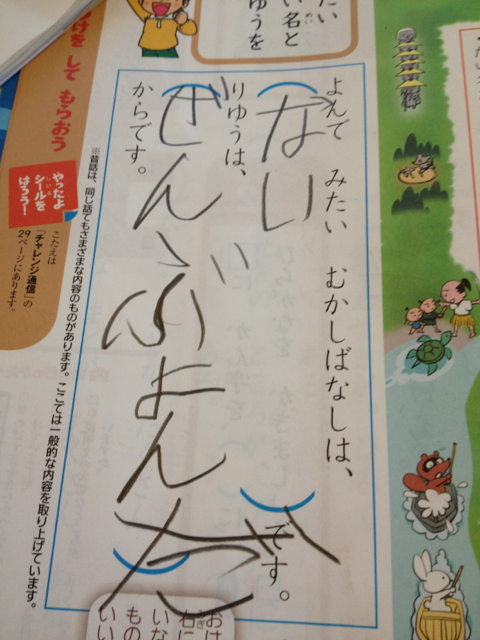 たい
い名と
ゆうを
よんで みたい むかしばなしは、
(ない)です。
りゆうは、
ぜんぶよんだ
からです。
※昔話は、同じ話でもさまざまな内容のものがあります。ここでは一般的な内容を取り上げています。
つけを して もらおう
やったよ
シールを
はろう!
こたえは
「チャレンジ通信」の
29ページにあります。
おは
右に
いな
もの
いい